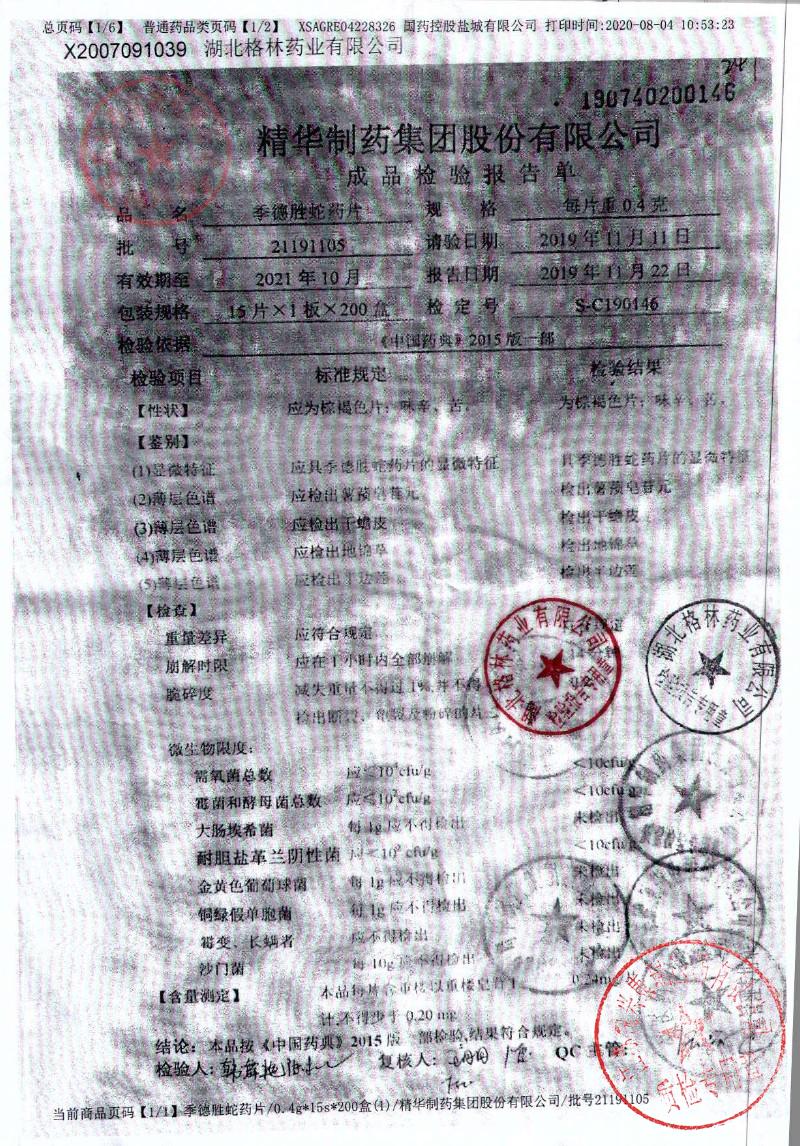 总页码【1/6】 普通药品类页码【1/2】 XSAGRE04228326 国药控股盐城有限公司 打印时间:2020-08-04 10:53:23
X2007091039 湖北格林药业有限公司
190740200146
精华制药集团股份有限公司
成品检验报告单
品 名 季德胜蛇药片 规 格 每片重0.4克
批 号 21191105 请验日期 2019年11月11日
有效期至 2021年10月 报告日期 2019年11月22日
包装规格 15片×1板×200盒 检定号 S-C190146
检验依据 《中国药典》2015版一部
检验项目 标准规定 检验结果
【性状】 应为棕褐色片；味辛、苦。 为棕褐色片；味辛、苦。
【鉴别】
(1)显微特征 应具季德胜蛇药片的显微特征 具季德胜蛇药片的显微特征
(2)薄层色谱 应检出薯蓣皂苷元 检出薯蓣皂苷元
(3)薄层色谱 应检出干蟾皮 检出干蟾皮
(4)薄层色谱 应检出地锦草 检出地锦草
(5)薄层色谱 应检出半边莲 检出半边莲
【检查】
重量差异 应符合规定
崩解时限 应在1小时内全部崩解
脆碎度 减失重量不得过1%,并不得
检出断裂、龟裂及粉碎的片
微生物限度:
需氧菌总数 <10cfu/g
霉菌和酵母菌总数 应≤10²cfu/g <10cfu/g
大肠埃希菌 每1g应不得检出 未检出
耐胆盐革兰阴性菌 <10cfu/g
金黄色葡萄球菌 每1g应不得检出 未检出
铜绿假单胞菌 每1g应不得检出 未检出
霉变、长螨者 应不得检出 未检出
沙门菌 每10g应不得检出 未检出
【含量测定】 本品每片含重楼以重楼皂苷I 0.24mg
计,不得少于0.20mg
结论: 本品按《中国药典》2015版一部检验,结果符合规定。
检验人: 复核人: QC主管:
湖北格林药业有限公司
湖北格林药业有限公司
质检专用章
当前商品页码【1/1】季德胜蛇药片/0.4g*15s*200盒(1)/精华制药集团股份有限公司/批号21191105